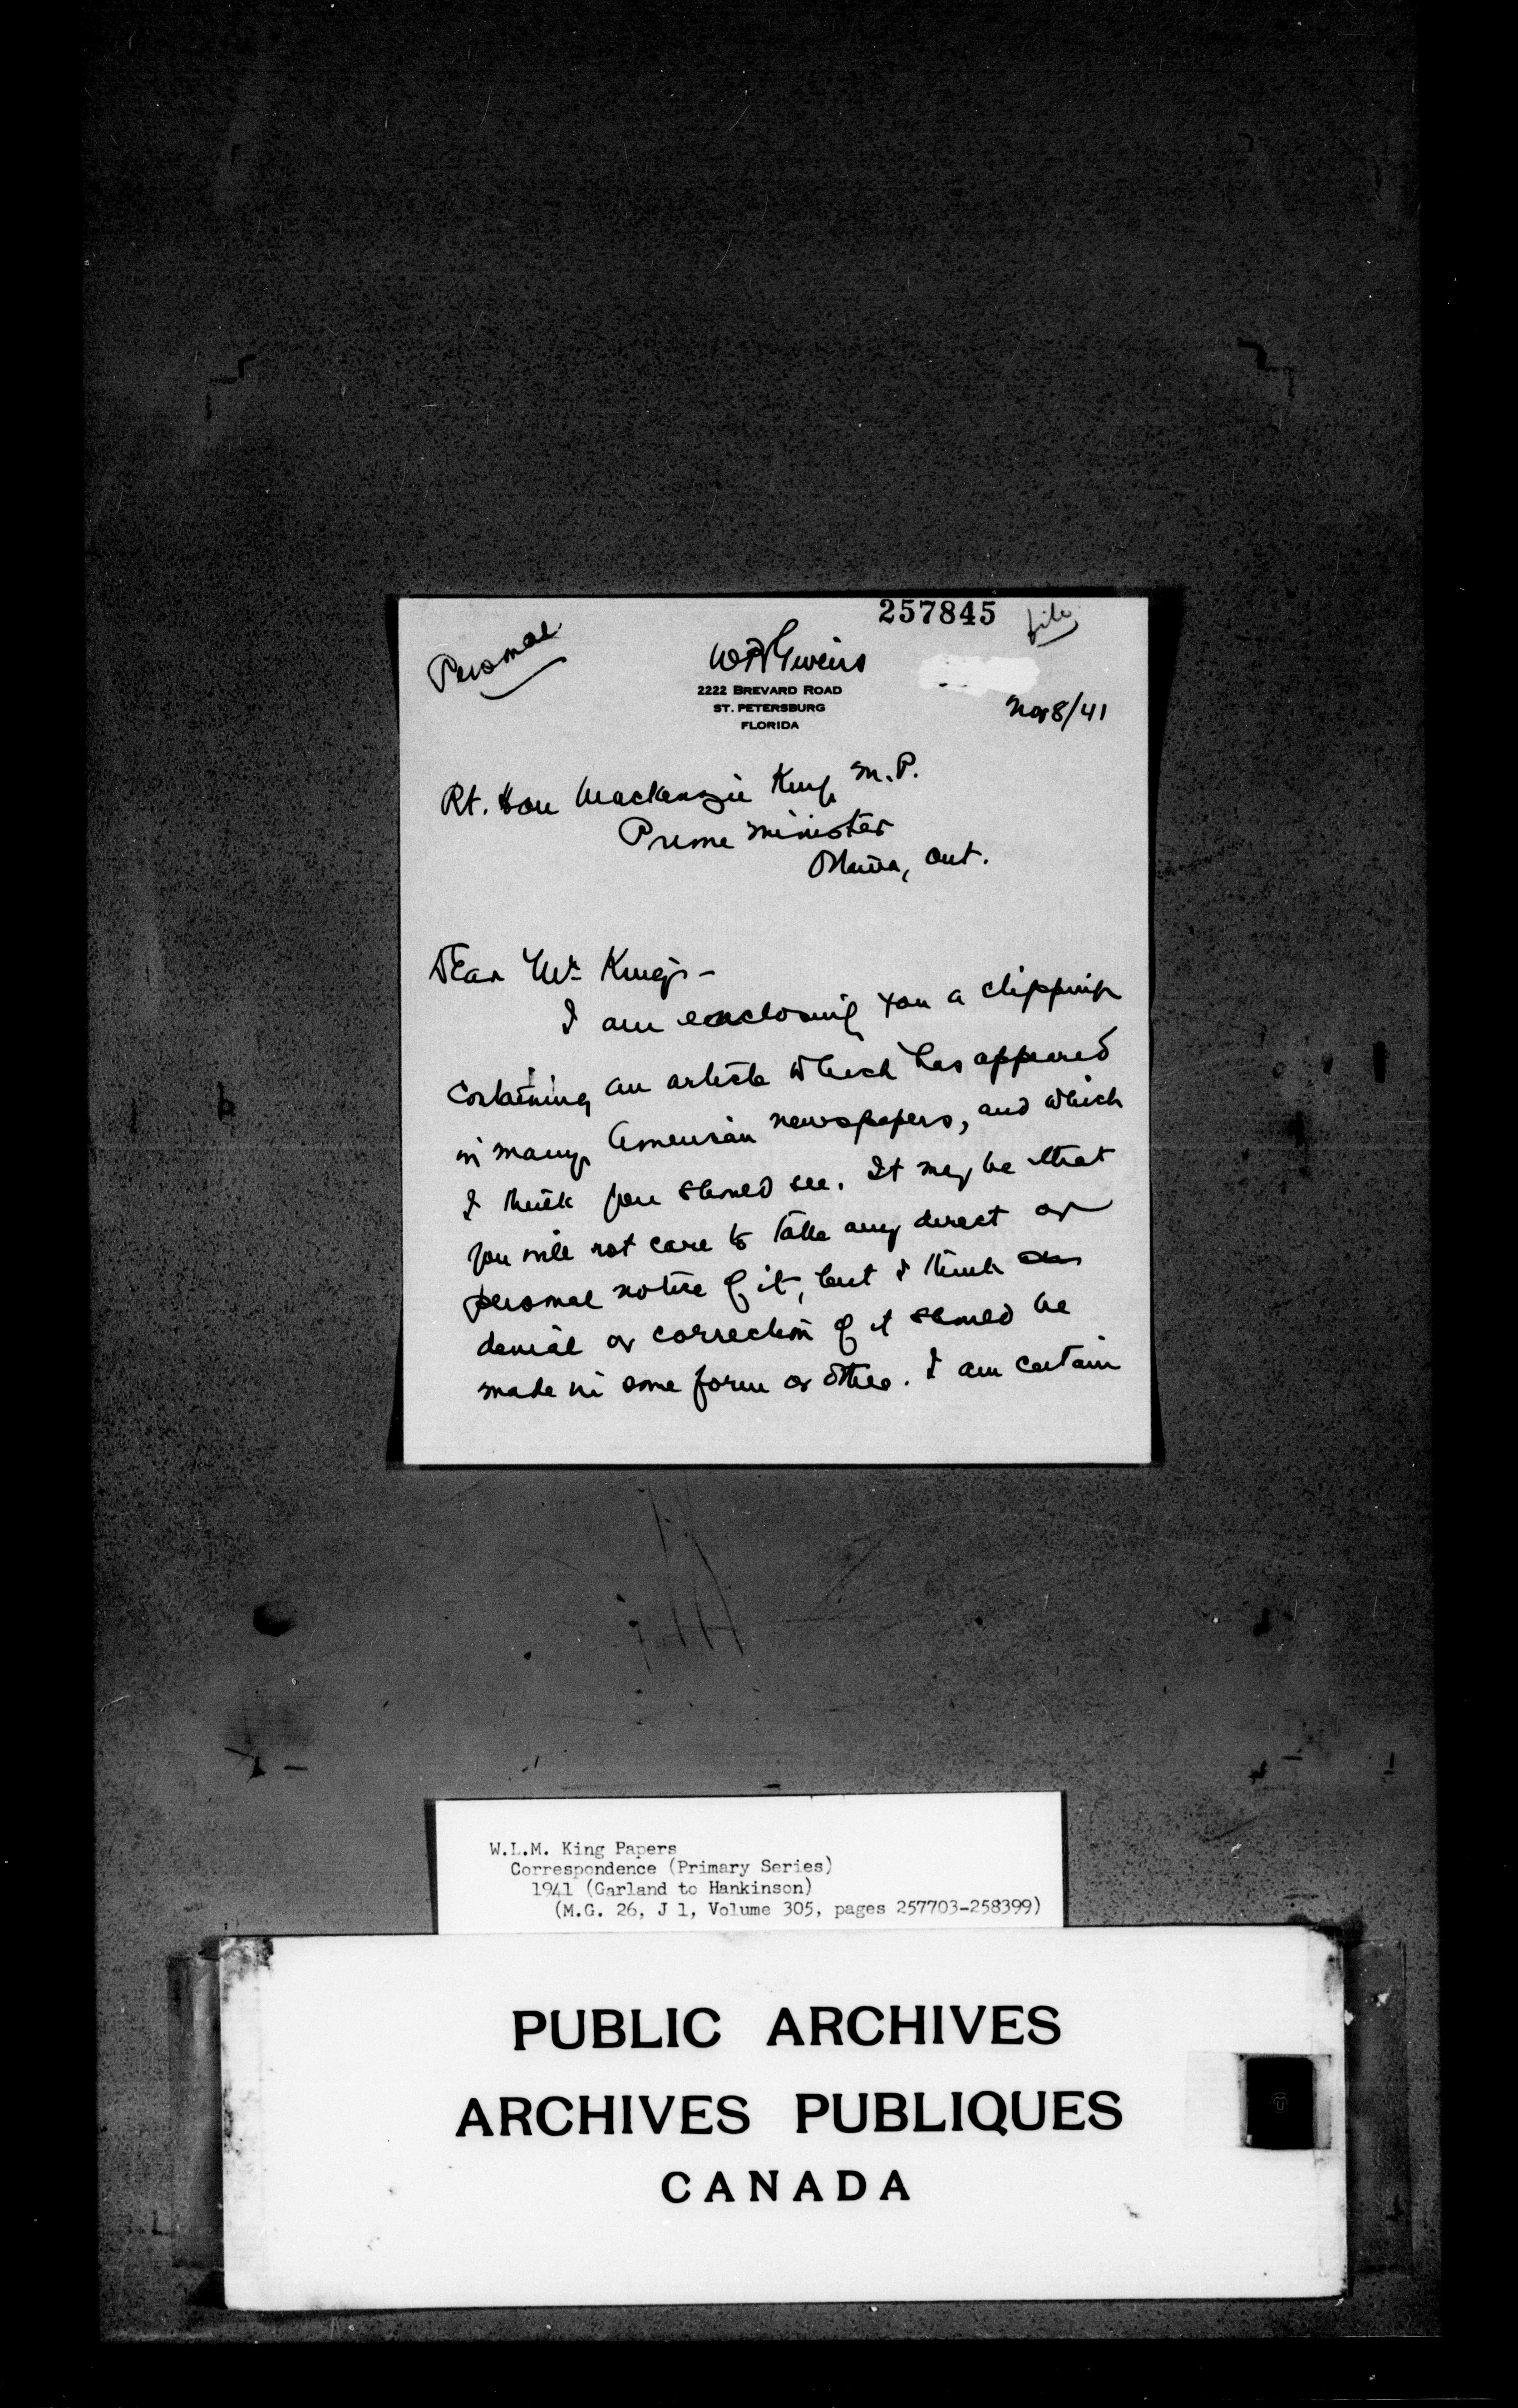 257845
file
Personal
2222 BREVARD ROAD
ST. PETERSBURG
FLORIDA
Nov 8/41
Rt. Hon Mackenzie King M.P.
Prime Minister
Ottawa, Ont.
Dear Mr King:-
I am enclosing you a clipping
containing an article which has appeared
in many American newspapers, and which
I think you should see. It may be that
you will not care to take any direct or
personal notice of it, but I think
denial or correction of it should be
made in some form or other. I am certain
W.L.M. King Papers
Correspondence (Primary Series)
1941 (Garland to Hankinson)
(M.G. 26, J 1, Volume 305, pages 257703-258399)
PUBLIC ARCHIVES
ARCHIVES PUBLIQUES
CANADA